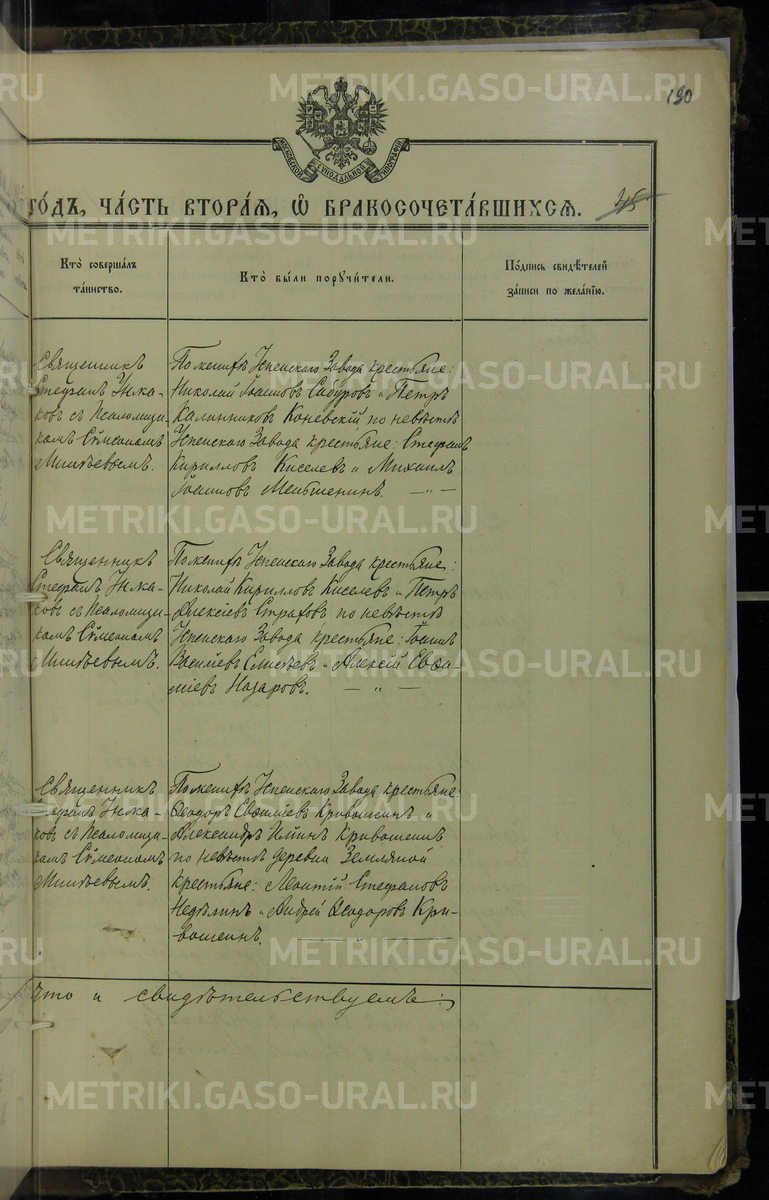 190
МОСКОВСКОЙ СѴНОДАЛЬНОЙ ТИПОГРАФІИ
ГОДЪ, ЧАСТЬ ВТОРАЯ, Ѡ БРАКОСОЧЕТАВШИХСЯ. 45
Кто совершалъ
таинство.
Кто были поручители.
Подпись свидѣтелей
записи по желанію.
Священникъ
Стефанъ
ковъ съ Псаломщи-
комъ Сѵмеономъ
По женихѣ Успенскаго Завода крестьяне:
Николай Іоанновъ Сабуровъ и Петръ
Калинниковъ Коневскій по невѣстѣ
Успенскаго Завода крестьяне: Стефанъ
Кирилловъ Киселевъ и Михаилъ
Іоанновъ Меньшенинъ. — „ —
Священникъ
Стефанъ
ковъ съ Псаломщи-
комъ Сѵмеономъ
По женихѣ Успенскаго Завода крестьяне:
Николай Кирилловъ Киселевъ и Петръ
Алексіевъ по невѣстѣ
Успенскаго Завода крестьяне: Іоаннъ
Василіевъ Елисѣевъ и Алексій Евѳи-
міевъ Назаровъ. — „ —
Священникъ
Стефанъ
ковъ съ Псаломщи-
комъ Сѵмеономъ
По женихѣ Успенскаго Завода крестьяне
Ѳеодоръ Евѳиміевъ Кривошеинъ и
Александръ Ильинъ Кривошеинъ
по невѣстѣ деревни Земляной
крестьяне: Леонтій Стефановъ
Недѣлинъ и Андрей Ѳеодоровъ Кри-
вошеинъ.
Что и свидѣтельствуемъ:
METRIKI.GASO-URAL.RU